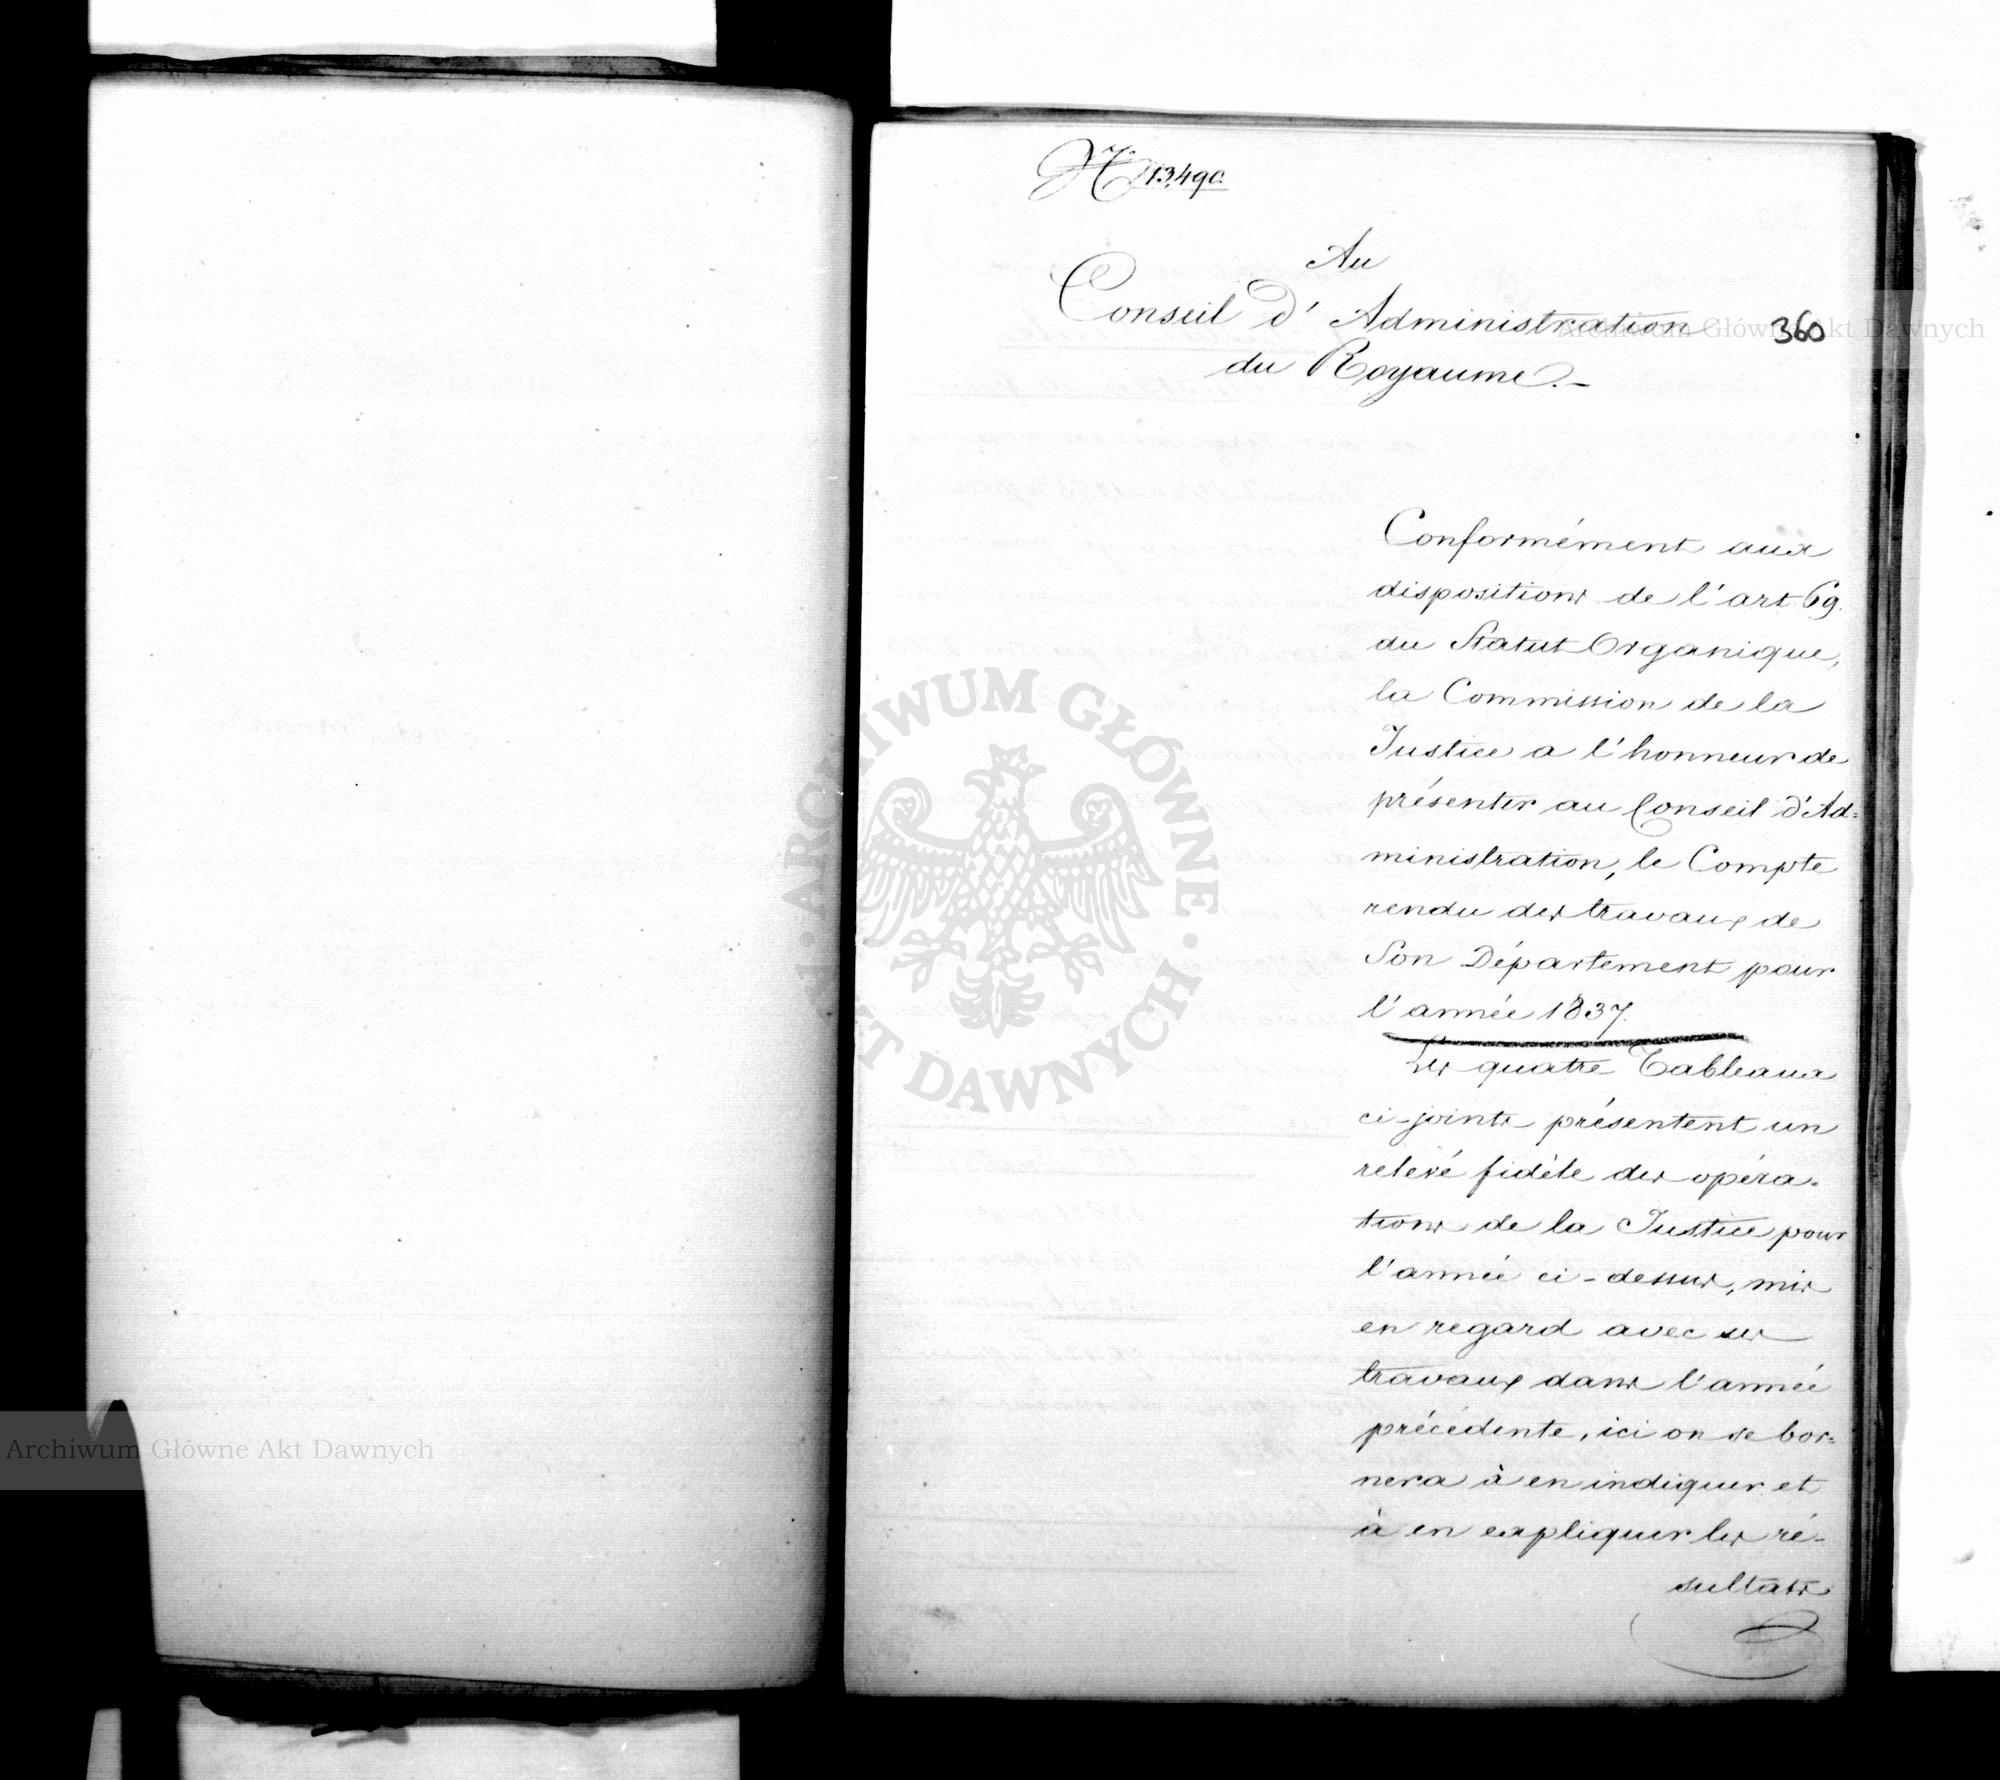 N 13,490.
Au
Conseil d'Administration
360
du Royaume.-
Conformément aux
dispositions de l'art 69.
du Statut Organique,
la Commission de la
Justice a l'honneur de
présenter au Conseil d'Ad=
ministration, le Compte
rendu des travaux de
Son Département pour
l'année 1837.
Les quatre Tableaux
ci-joints présentent un
relevé fidèle des opéra-
tions de la Justice pour
l'année ci-dessus, mis
en regard avec ses
travaux dans l'année
précédente, ici on se bor=
nera à en indiquer et
à en expliquer les ré-
sultats
Archiwum Główne Akt Dawnych
Archiwum Główne Akt Dawnych
ARCHIWUM GŁÓWNE · AKT DAWNYCH ·